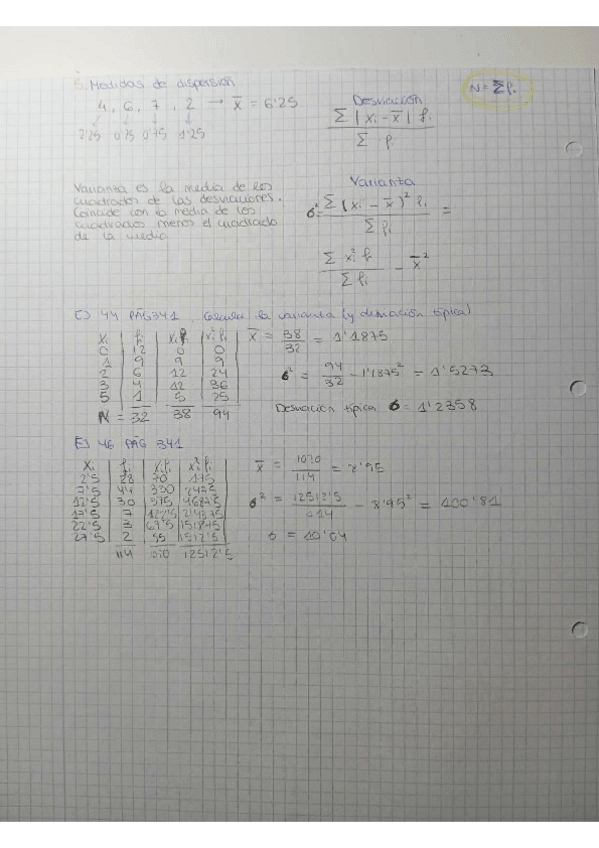 5. Medidas de dispersión
N = Σ fi
4 , 6 , 7 , 2 → x̄ = 6'25
2'25 0'75 0'75 1'25
Desviación
Σ | xi - x̄ | fi
Σ fi
Varianza es la media de los
cuadrados de las desviaciones.
Coincide con la media de los
cuadrados menos el cuadrado
de la media
Varianza
σ² = Σ (xi - x̄)² fi =
Σ fi
Σ xi² fi - x̄²
Σ fi
E) 44 PÁG 341. Calcula la varianza (y desviación típica)
xi | fi | xi fi | xi² fi
0 | 12 | 0 | 0
1 | 9 | 9 | 9
2 | 6 | 12 | 24
3 | 4 | 12 | 36
5 | 1 | 5 | 25
N = 32 38 94
x̄ = 38/32 = 1'1875
σ² = 94/32 - 1'1875² = 1'5273
Desviación típica σ = 1'2358
E) 46 PÁG 341
xi | fi | xi fi | xi² fi
2'5 | 28 | 70 | 175
7'5 | 44 | 330 | 2475
12'5 | 30 | 375 | 4687'5
17'5 | 7 | 122'5 |
22'5 | 3 | 67'5 |
27'5 | 2 | 55 | 1512'5
114 1020 12512'5
x̄ = 1020/114 = 8'95
σ² = 12512'5/114 - 8'95² = 100'81
σ = 10'04